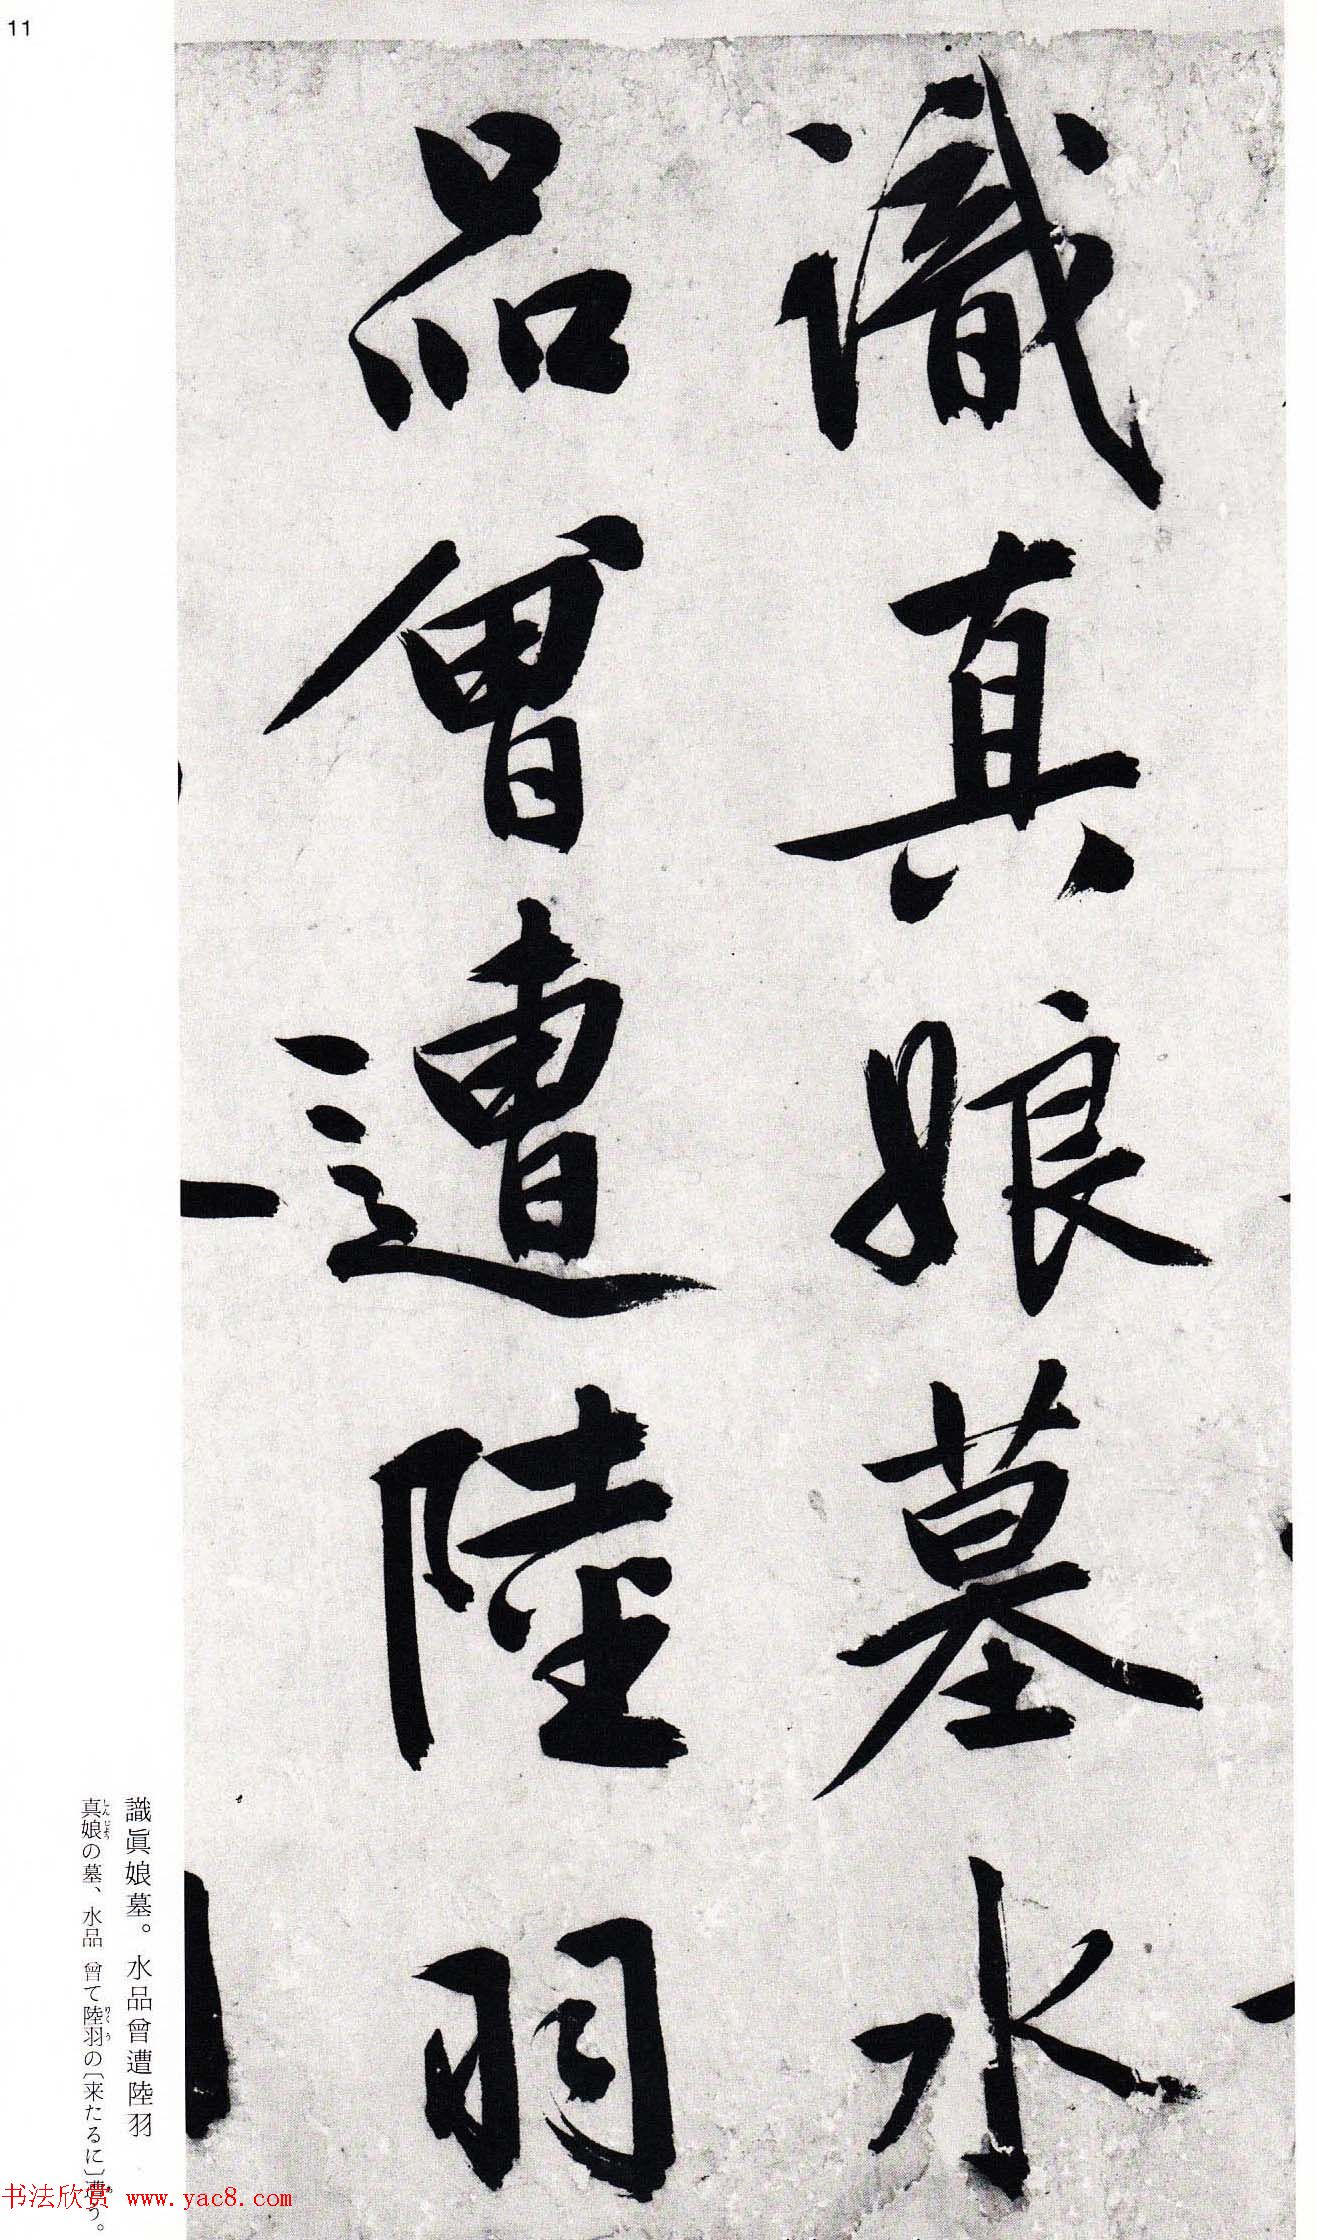 11
識真娘墓水
品曾遭陸羽
識眞娘墓。水品曾遭陸羽
真娘の墓、水品 曾て陸羽の〔来たるに〕遭う。
しんじょう
りくう
あ
书法欣赏 www.yac8.com